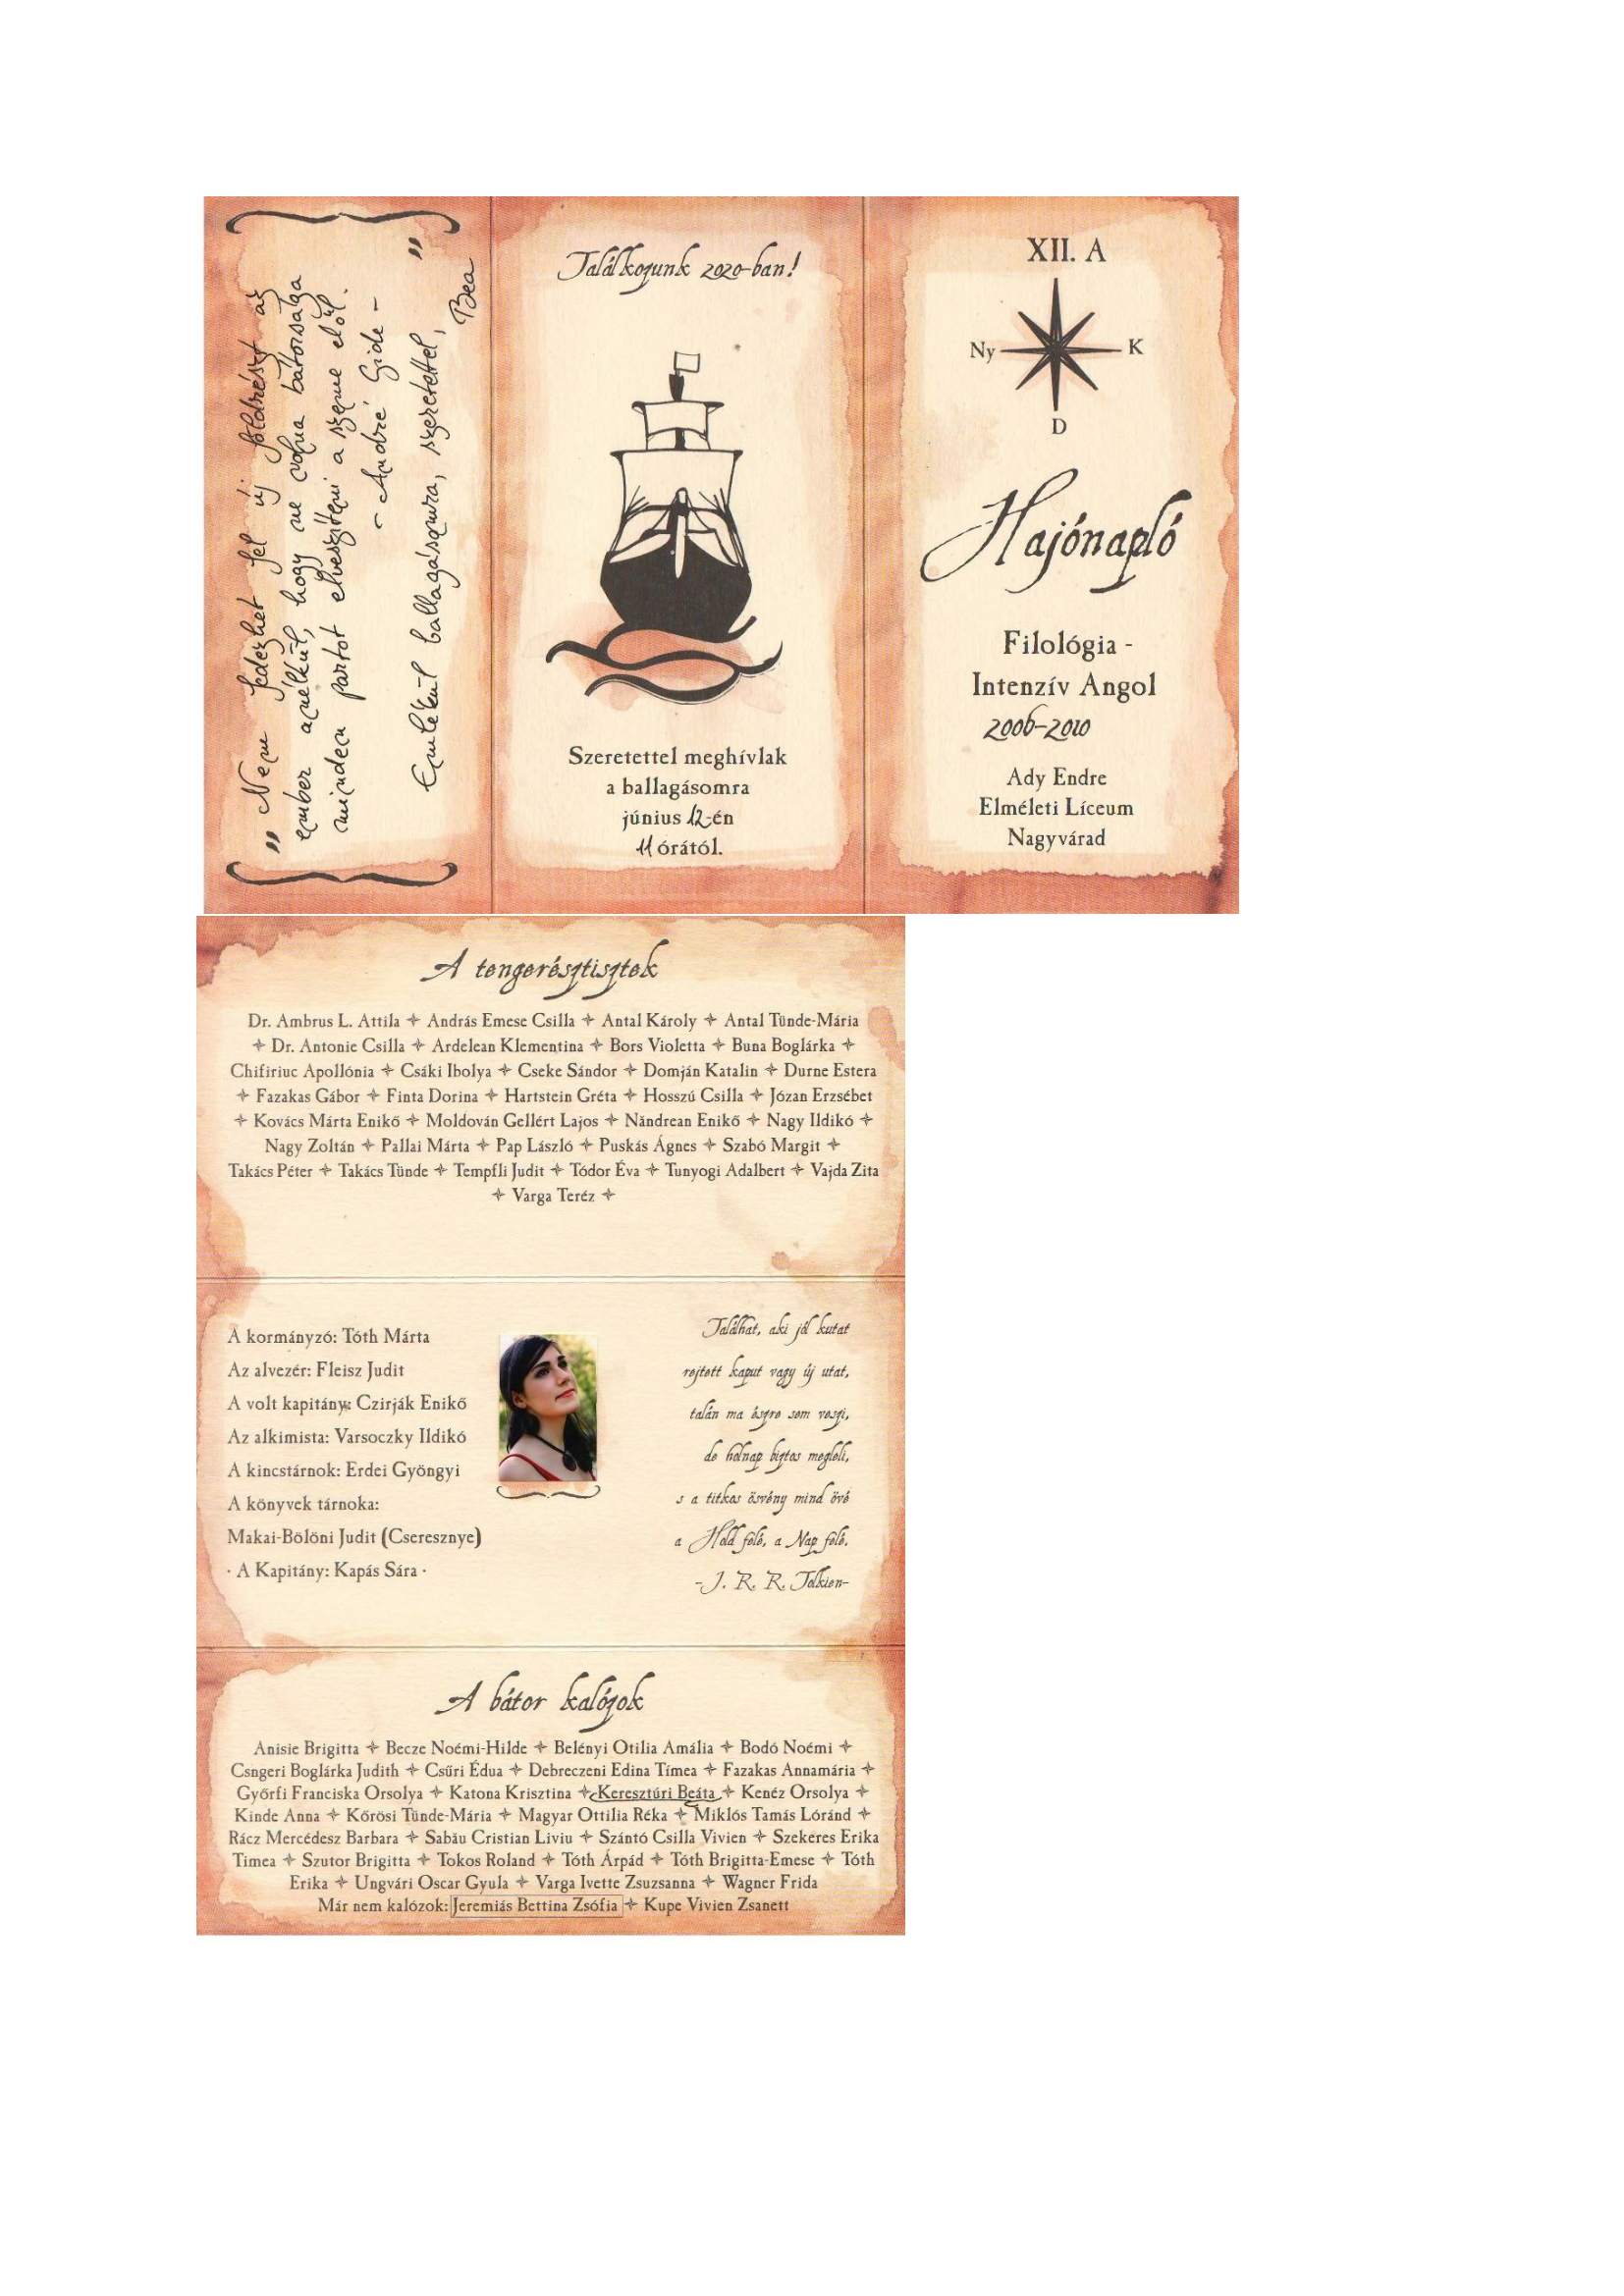 „Nem fedezhet fel új földrészt az
ember anélkül, hogy ne volna bátorsága
minden partot elveszíteni a szeme elől.
- André Gide -
”
Emlékül ballagásomra, szeretettel,
Bea
Találkozunk 2020-ban!
Szeretettel meghívlak
a ballagásomra
június 12-én
11 órától.
XII. A
Ny K
D
Hajónapló
Filológia -
Intenzív Angol
2006-2010
Ady Endre
Elméleti Líceum
Nagyvárad
A tengerésztisztek
Dr. Ambrus L. Attila ✧ András Emese Csilla ✧ Antal Károly ✧ Antal Tünde-Mária
✧ Dr. Antonie Csilla ✧ Ardelean Klementina ✧ Bors Violetta ✧ Buna Boglárka ✧
Chifiriuc Apollónia ✧ Csáki Ibolya ✧ Cseke Sándor ✧ Domján Katalin ✧ Durne Estera
✧ Fazakas Gábor ✧ Finta Dorina ✧ Hartstein Gréta ✧ Hosszú Csilla ✧ Józan Erzsébet
✧ Kovács Márta Enikő ✧ Moldován Gellért Lajos ✧ Nándrean Enikő ✧ Nagy Ildikó ✧
Nagy Zoltán ✧ Pallai Márta ✧ Pap László ✧ Puskás Ágnes ✧ Szabó Margit ✧
Takács Péter ✧ Takács Tünde ✧ Tempfli Judit ✧ Tódor Éva ✧ Tunyogi Adalbert ✧ Vajda Zita
✧ Varga Teréz ✧
A kormányzó: Tóth Márta
Az alvezér: Fleisz Judit
A volt kapitány: Czirják Enikő
Az alkimista: Varsoczky Ildikó
A kincstárnok: Erdei Gyöngyi
A könyvek tárnoka:
Makai-Bölöni Judit (Cseresznye)
· A Kapitány: Kapás Sára ·
Találhat, aki jól kutat
rejtett kaput vagy új utat,
talán ma észre sem veszi,
de holnap biztos megleli,
s a titkos ösvény mind övé
a Hold felé, a Nap felé.
-J. R. R. Tolkien-
A bátor kalózok
Anisie Brigitta ✧ Becze Noémi-Hilde ✧ Belényi Otilia Amália ✧ Bodó Noémi ✧
Csngeri Boglárka Judith ✧ Csűri Édua ✧ Debreczeni Edina Tímea ✧ Fazakas Annamária ✧
Győrfi Franciska Orsolya ✧ Katona Krisztina ✧ Keresztúri Beáta ✧ Kenéz Orsolya ✧
Kinde Anna ✧ Kőrösi Tünde-Mária ✧ Magyar Ottilia Réka ✧ Miklós Tamás Lóránd ✧
Rácz Mercédesz Barbara ✧ Sabău Cristian Liviu ✧ Szántó Csilla Vivien ✧ Szekeres Erika
Timea ✧ Szutor Brigitta ✧ Tokos Roland ✧ Tóth Árpád ✧ Tóth Brigitta-Emese ✧ Tóth
Erika ✧ Ungvári Oscar Gyula ✧ Varga Ivette Zsuzsanna ✧ Wagner Frida
Már nem kalózok: Jeremiás Bettina Zsófia ✧ Kupe Vivien Zsanett